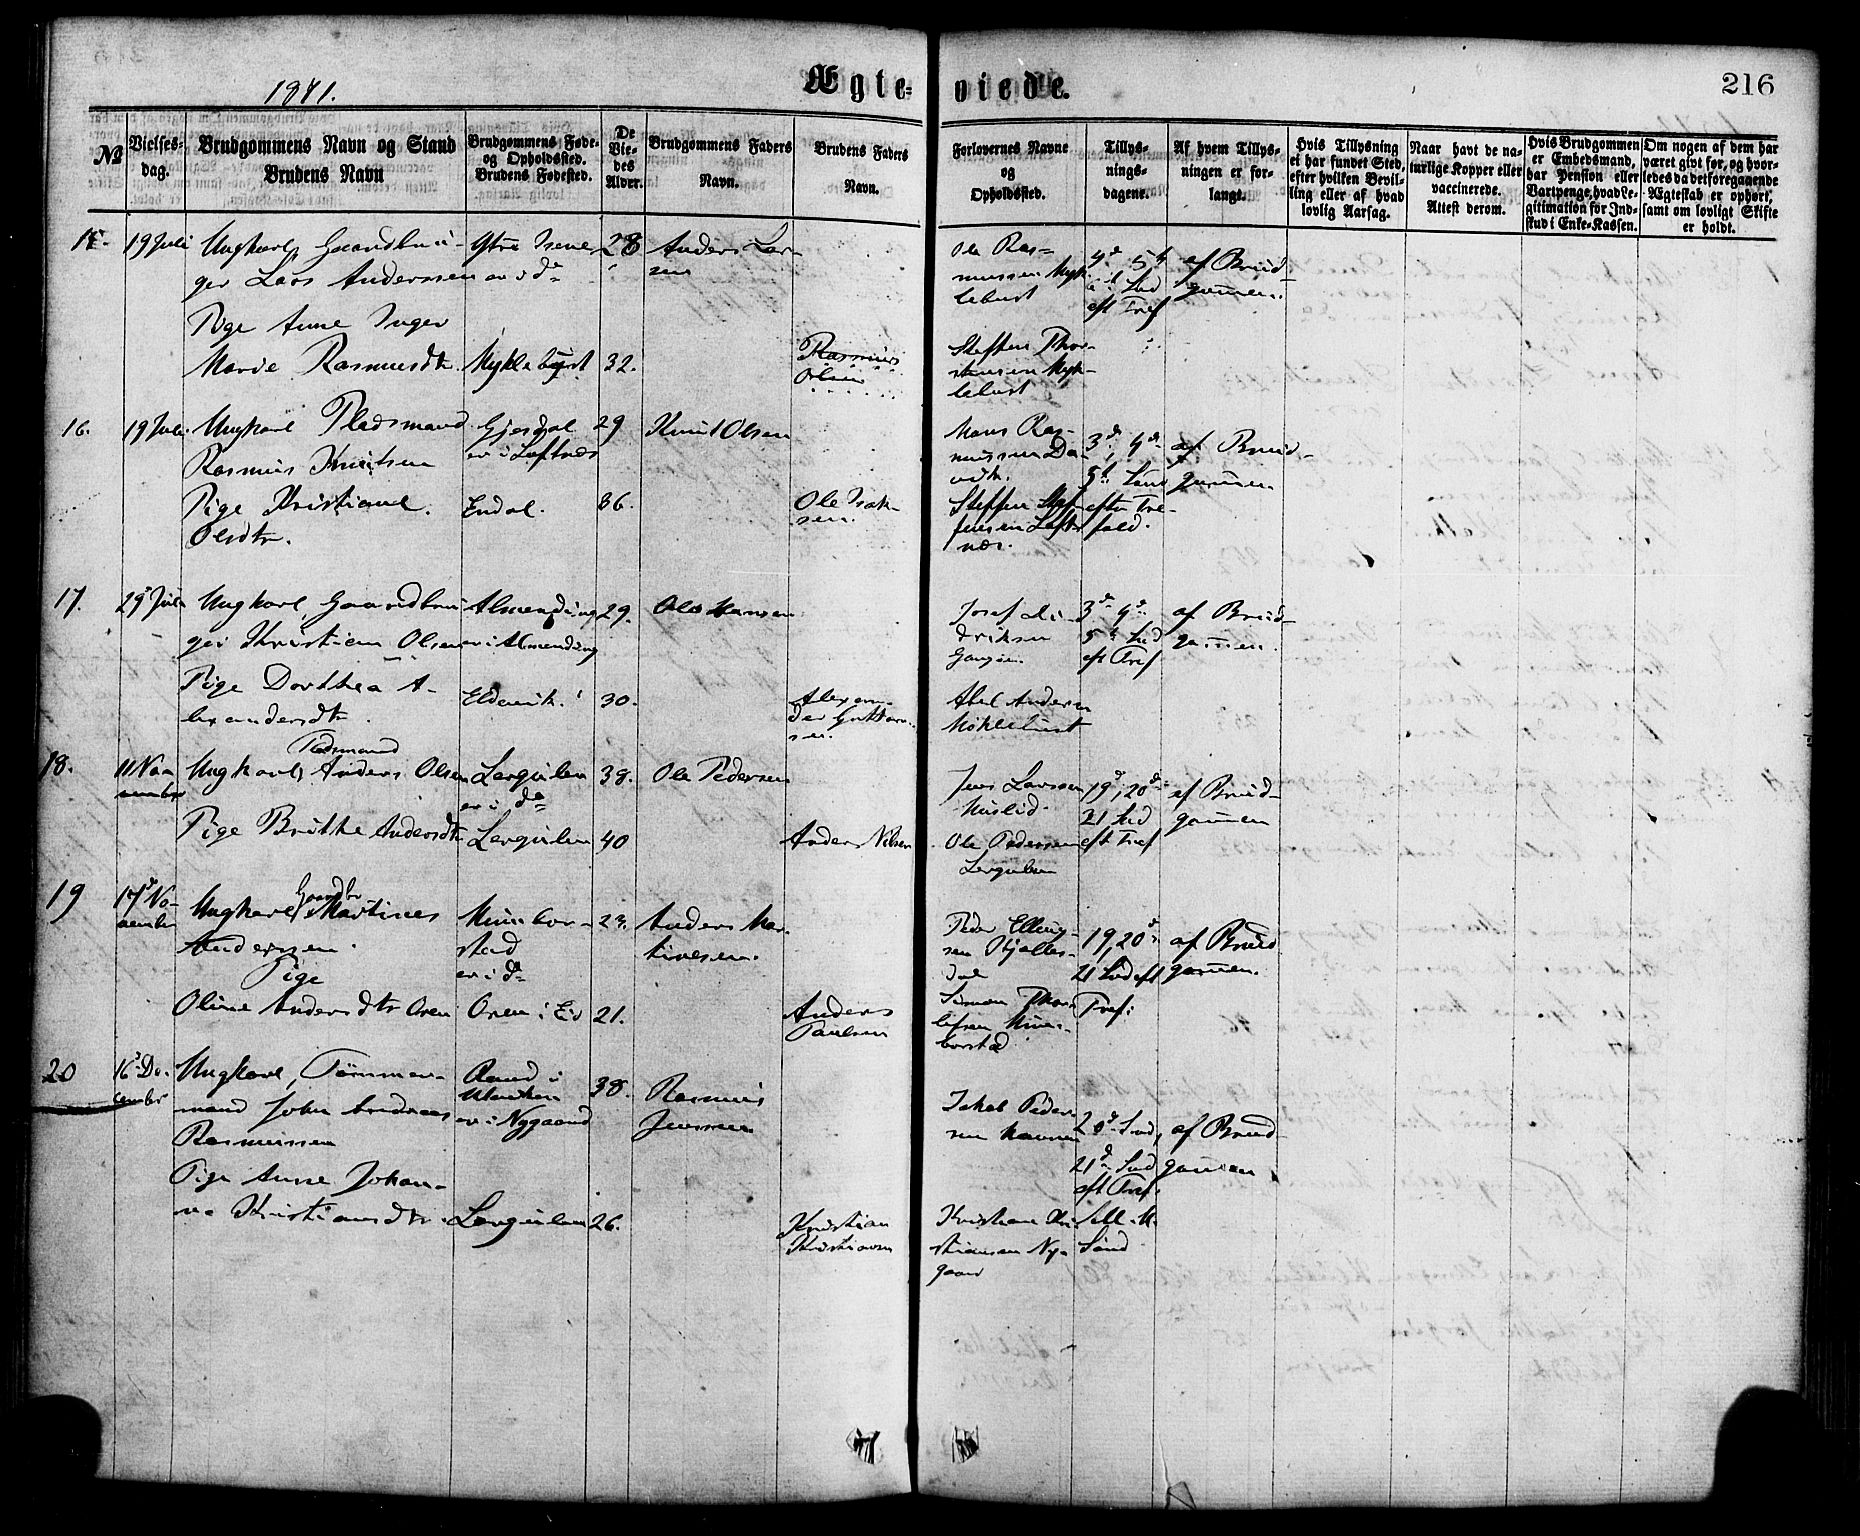 1871.
Ægte-
viede.
216
№
Vielses-
dag.
Brudgommens Navn og Stand
Brudens Navn
Brudgommens Føde-
og Opholdssted.
Brudens Fødested.
De
Vie-
des
Alder.
Brudgommens Faders
Navn.
Brudens Faders
Navn.
Forlovernes Navne
og
Opholdssted.
Tillys-
nings-
dagene.
Af hvem Tillys-
ningen er for-
langt.
Hvis Tillysning
ei har fundet Sted,
efter hvilken Bevil-
ling eller af hvad
lovlig Aarsag.
Naar havt de na-
turlige Kopper eller
vaccinerede.
Attest derom.
Hvis Brudgommen
er Embedsmand,
har Pension eller
Vartpenge, hvad Le-
gitimation for Ind-
skud i Enke-Kassen.
Om nogen af dem har
været gift før, og hvor-
ledes da det foregaaende
Ægteskab er ophørt,
samt om lovligt Skifte
er holdt.
15.
19 Juli
Ungkarl, Gaardbru-
ger Lars Anderssen
Ytre
28
Anders Lar-
sen
Ole Ras-
mussen Myk-
lebust
4de 5t
6t Snd
eft Tref
af Brud-
gommen.
Pige Anne Inger
Marie Rasmusdtr.
Myklebust
32.
Rasmus
Olsen
Steffen Thor-
stensen Myk-
lebust
16.
19 Juli
Ungkarl Pladsmand
Rasmus Knutsen
Gjesdal
er i Loftnæs
29
Knut Olsen
Hans Ras-
mussen Da-
3de, 4de
5te Snd
efter Tre-
fold.
af Brud-
gommen
Pige Kristiane
Olsdtr.
Endal.
36.
Ole Isak-
sen.
Steffen Stef-
fensen Loft-
næs.
17.
29 Juli
Ungkarl, Gaardbru-
ger Kristian Olsen
Almending
er i Almending
29.
Ole Hansen
Josef Di-
driksen
3de 4de
5te Snd
eft Tref
af Brud-
gommen.
Pige Dorthea A-
lexandersdtr.
Eldevik.
30.
Alexan-
der Guttorm-
sen.
Abel Andersen
Møklebust
18.
11 No-
vember
Pladsmand
Ungkarl, Anders Olsen
Levgulen
er i do
38.
Ole Pedersen
Jens Larsen
Huslid
19d, 20de
21 Snd
eft Tref
af Brud-
gommen
Pige Brithe Andersdtr
Levgulen
40
Anders Nilsen
Ole Pedersen
Levgulen
19
17 No-
vember
Gaardbr
Ungkarl Martines
Anderssen.
stad
er i do
23.
Anders Mar-
tinesen.
Peder Elling-
sen Hjelles-
dal
19, 20de
21 Snd eft
Tref:
af Brud
gommen.
Pige
Oline Andersdtr Oren
Oren i Eid
21.
Anders
Paulsen
Simon Thor-
lefsen
20
16 De-
cember
Ungkarl, Tømmer-
mand John Andreas
Rasmussen
Rand i
er i Nygaard
38.
Rasmus
Jenssen
Jakob Peder-
sen Havnen
20de Snd,
21de Snd
eft Tref.
af Brud-
gommen
Pige Anne Johan-
ne Kristiansdtr.
Levgulen
26.
Kristian
Kristiansen
Kristian Kri-
stiansen Ny-
gaard